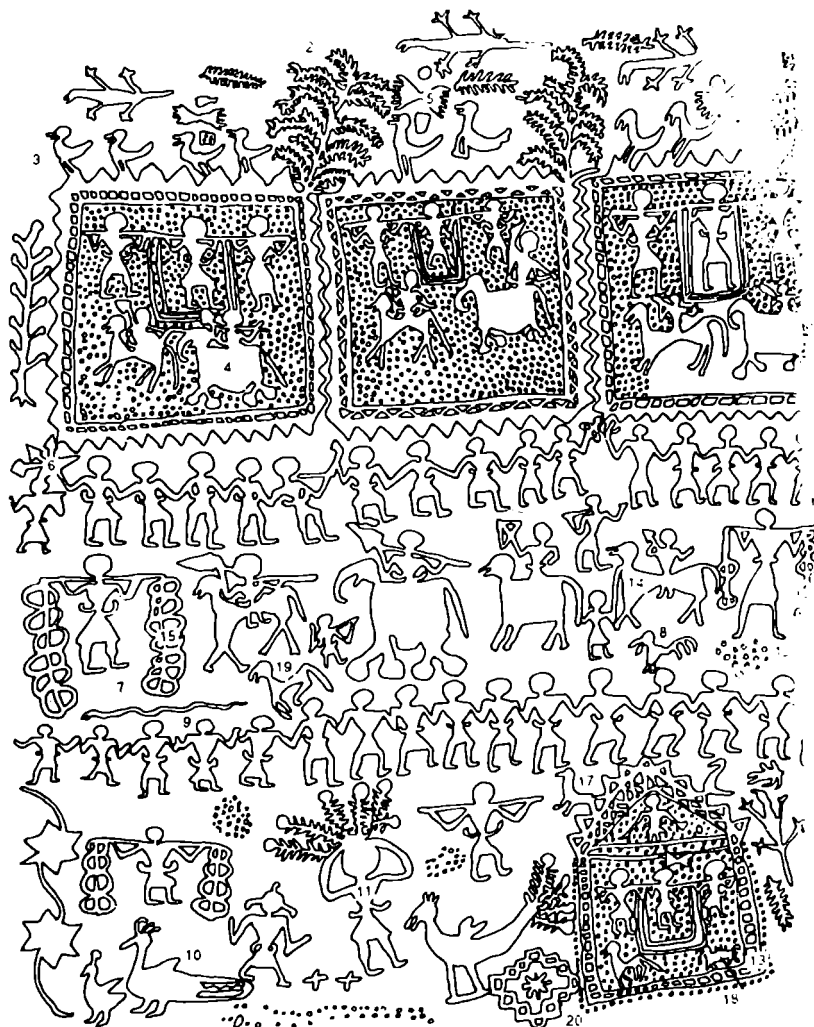 2
5
3
4
6
14
15 8
19
7
9
17
11
10 13
18
20